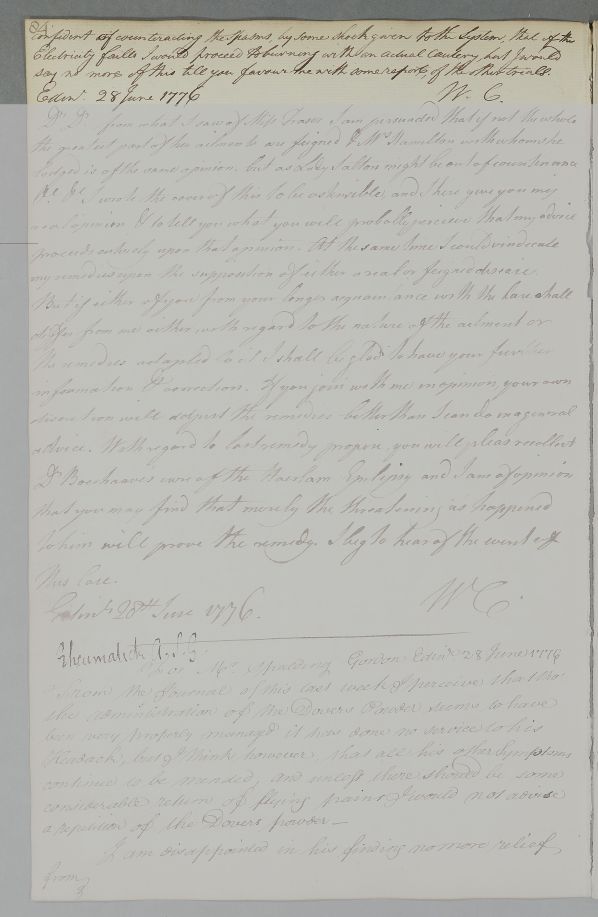 84
Confident of counteracting the spasms, by some shock given to the System, that if the
Electricity faills I would proceed to burning with an actual Cautery, but I would
say no more of this till you favour me with some report, of the other trials.
Edinr. 28 June 1776 W. C.
Dr. Dr. from what I saw of Miss Fraser I am persuaded that if not the whole
the greatest part of her ailments are feigned & Mrs Hamilton with whom she
lodged is of the same opinion. but as Lady Salton might be out of countenance
&c &c I wrote the cover of this to be ostensible, and here give you my
real opinion & to tell you what you will probably perceive that my advice
proceeds entirely upon that opinion. At the same time I could vindicate
my remedies upon the supposition of either a real or feigned disease.
But if either of you from your longer acquaintance with the case shall
differ from me either with regard to the nature of the ailment or
the remedies adapted to it I shall be glad to have your further
information & corrections. If you join with me in opinion, your own
discretion will adjust the remedies better than I can do in a general
advice. With regard to last remedy propos'd, you will please recollect
Dr Boerhaaves cure of the Haerlam Epilipsy and I am of opinion
that you may find that merely the threatening as happened
to him will prove the remedy. I beg to hear of the event of
this Case.
Edinr. 28th June 1776. WC.
Rheumatick
For Mr. Spalding Gordon Edinr. 28 June 1776
From the Journal of this last week I perceive that tho
the administration of the Dovers Powder seems to have
been very properly managd it has done no service to his
Headack, but I think however, that all his other Symptoms
continue to be mended, and unless there should be some
considerable return of flying pains I would not advise
a repetition of the Dovers powder—
I am disappointed in his finding no more relief
from